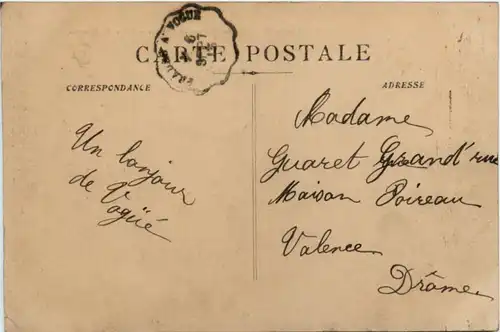 CARTE POSTALE
CORRESPONDANCE
Un bonjour
de Vogüé
ADRESSE
Madame
Guaret Grand'rue
Maison Poireau
Valence
Drôme
A VOGUE